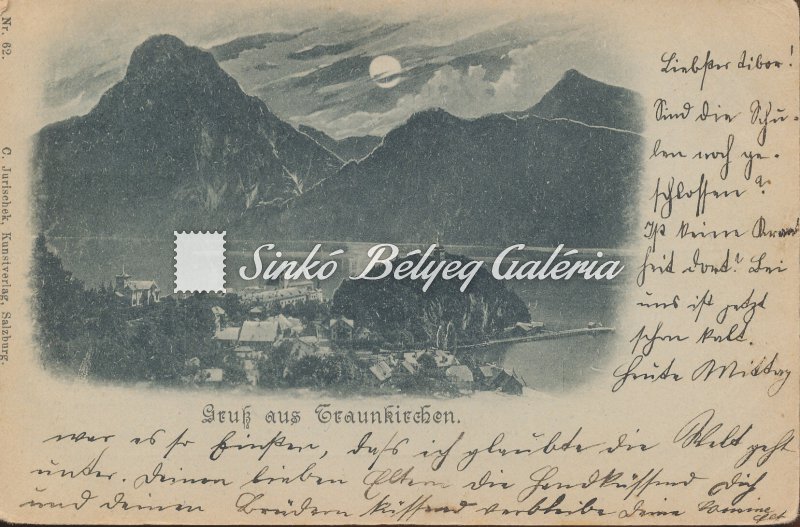 Nr. 62.
C. Jurischek, Kunstverlag, Salzburg.
Sinkó Bélyeg Galéria
Gruß aus Traunkirchen.
Liebster Tibor!
Sind die Schu-
len noch ge-
schlossen?
Ist keine Krank
heit dort? Bei
uns ist jetzt
schon kalt.
Heute Mittag
war es so finster, daß ich glaubte die Welt geht
unter. Deinen lieben Eltern die Hand küssend Dich
und deinen Brüdern küssend verbleibe Deine